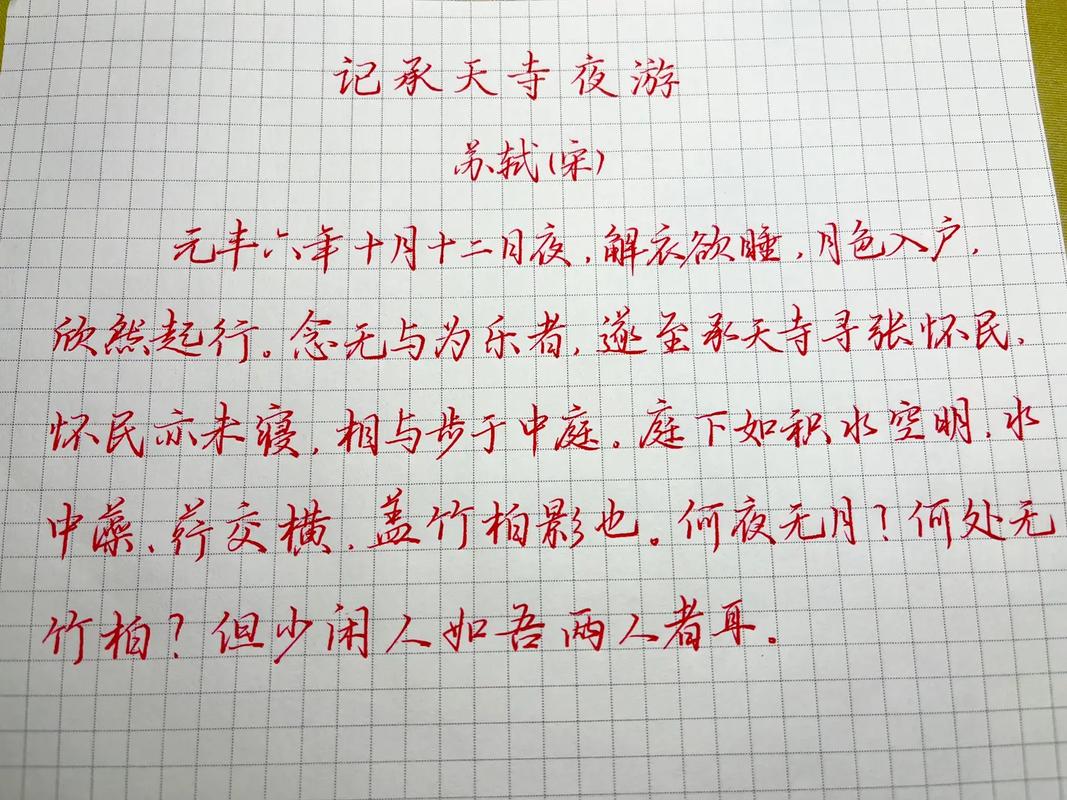 记承天寺夜游
苏轼(宋)
元丰六年十月十二日夜,解衣欲睡,月色入户,
欣然起行。念无与为乐者,遂至承天寺寻张怀民,
怀民亦未寝,相与步于中庭。庭下如积水空明,水
中藻、荇交横,盖竹柏影也。何夜无月?何处无
竹柏?但少闲人如吾两人者耳。